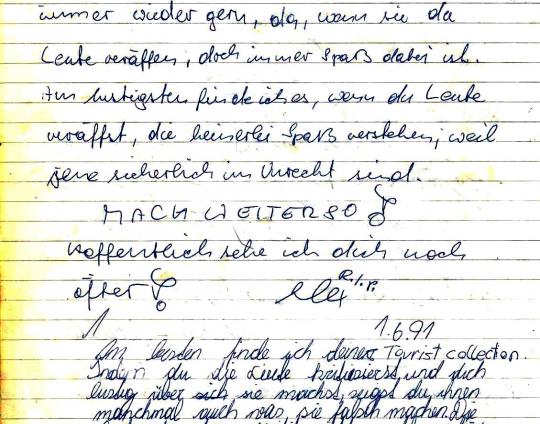 immer wieder gern, da, wenn sie da
Leute veräffen, doch immer Spaß dabei ist.
Am lustigsten finde ich es, wenn du Leute
veräffst, die keinerlei Spaß verstehen, weil
jene sicherlich im Unrecht sind.
MACH WEITER SO !
Hoffentlich sehe ich dich noch
öfter ! Alex R.I.P.
1.6.91
Am besten finde ich deine Tourist collection.
Indem du die Leute kritisierst und dich
lustig über sich sie machst, sagst du ihnen
manchmal auch was, sie falsch machen. Die